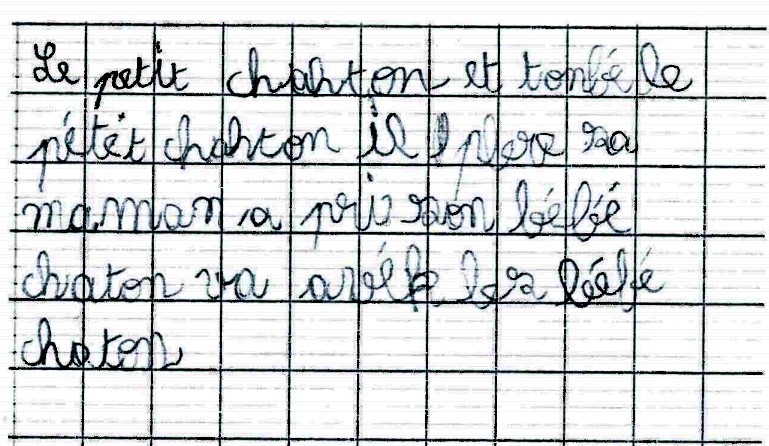 Le petit chahton et tonbé le
pétét chahton il plere sa
maman a pri son bébé
chaton va avêk les béebé
chaton